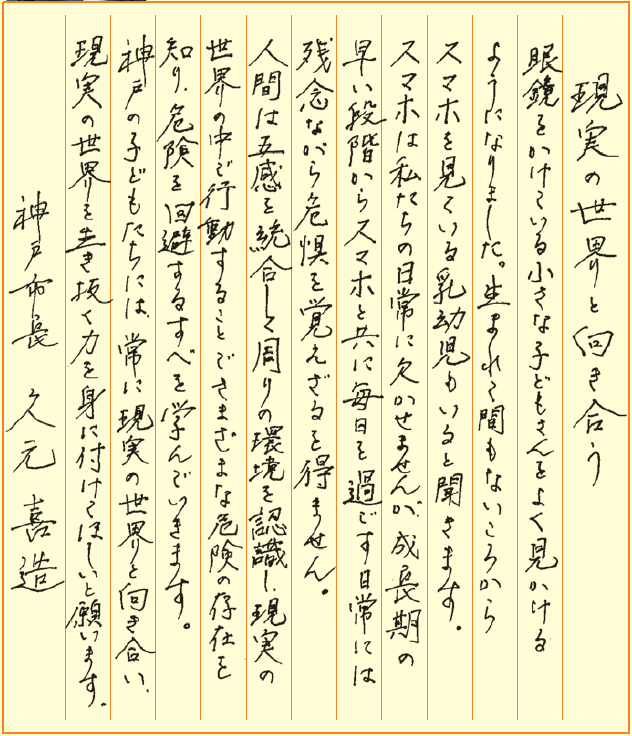 現実の世界と向き合う
眼鏡をかけている小さな子どもさんをよく見かける
ようになりました。生まれて間もないころから
スマホを見ている乳幼児もいると聞きます。
スマホは私たちの日常に欠かせませんが、成長期の
早い段階からスマホと共に毎日を過ごす日常には
残念ながら危惧を覚えざるを得ません。
人間は五感を統合して周りの環境を認識し、現実の
世界の中で行動することでさまざまな危険の存在を
知り、危険を回避するすべを学んでいきます。
神戸の子どもたちには、常に現実の世界と向き合い、
現実の世界を生き抜く力を身に付けてほしいと願います。
神戸市長 久元喜造